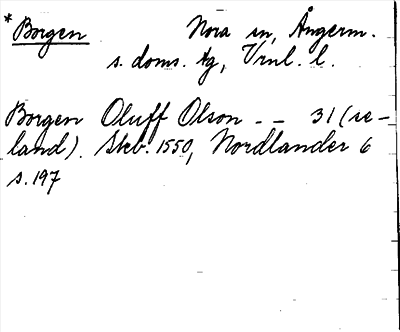 * Borgen Nora sn, Ångerm.
s. doms. tg, Vrnl. l.
Borgen Oluff Olson -- 31 (se-
land). Skb. 1550, Nordlander 6
s. 197